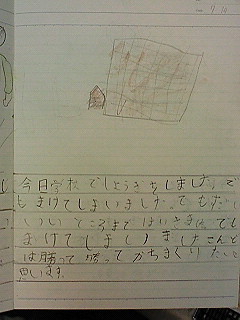 今日学校でしょうぎをしました。で
もまけてしまいました
いいところまではいきました。でも
まけてしまいましたこんど
は勝って勝ってかちまくりたいと
思います。